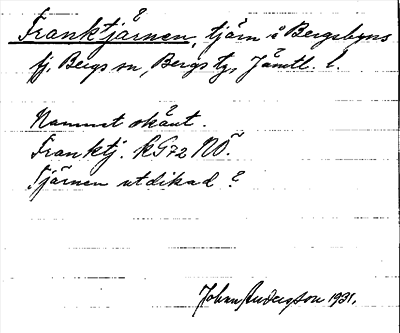 Franktjärnen, tjärn i Bergsbyns
fj, Bergs sn, Bergs tg, Jämtl. l.
Namnet okänt.
Franktj. kG72 NÖ.
Tjärnen utdikad?
Johan Andersson 1931.